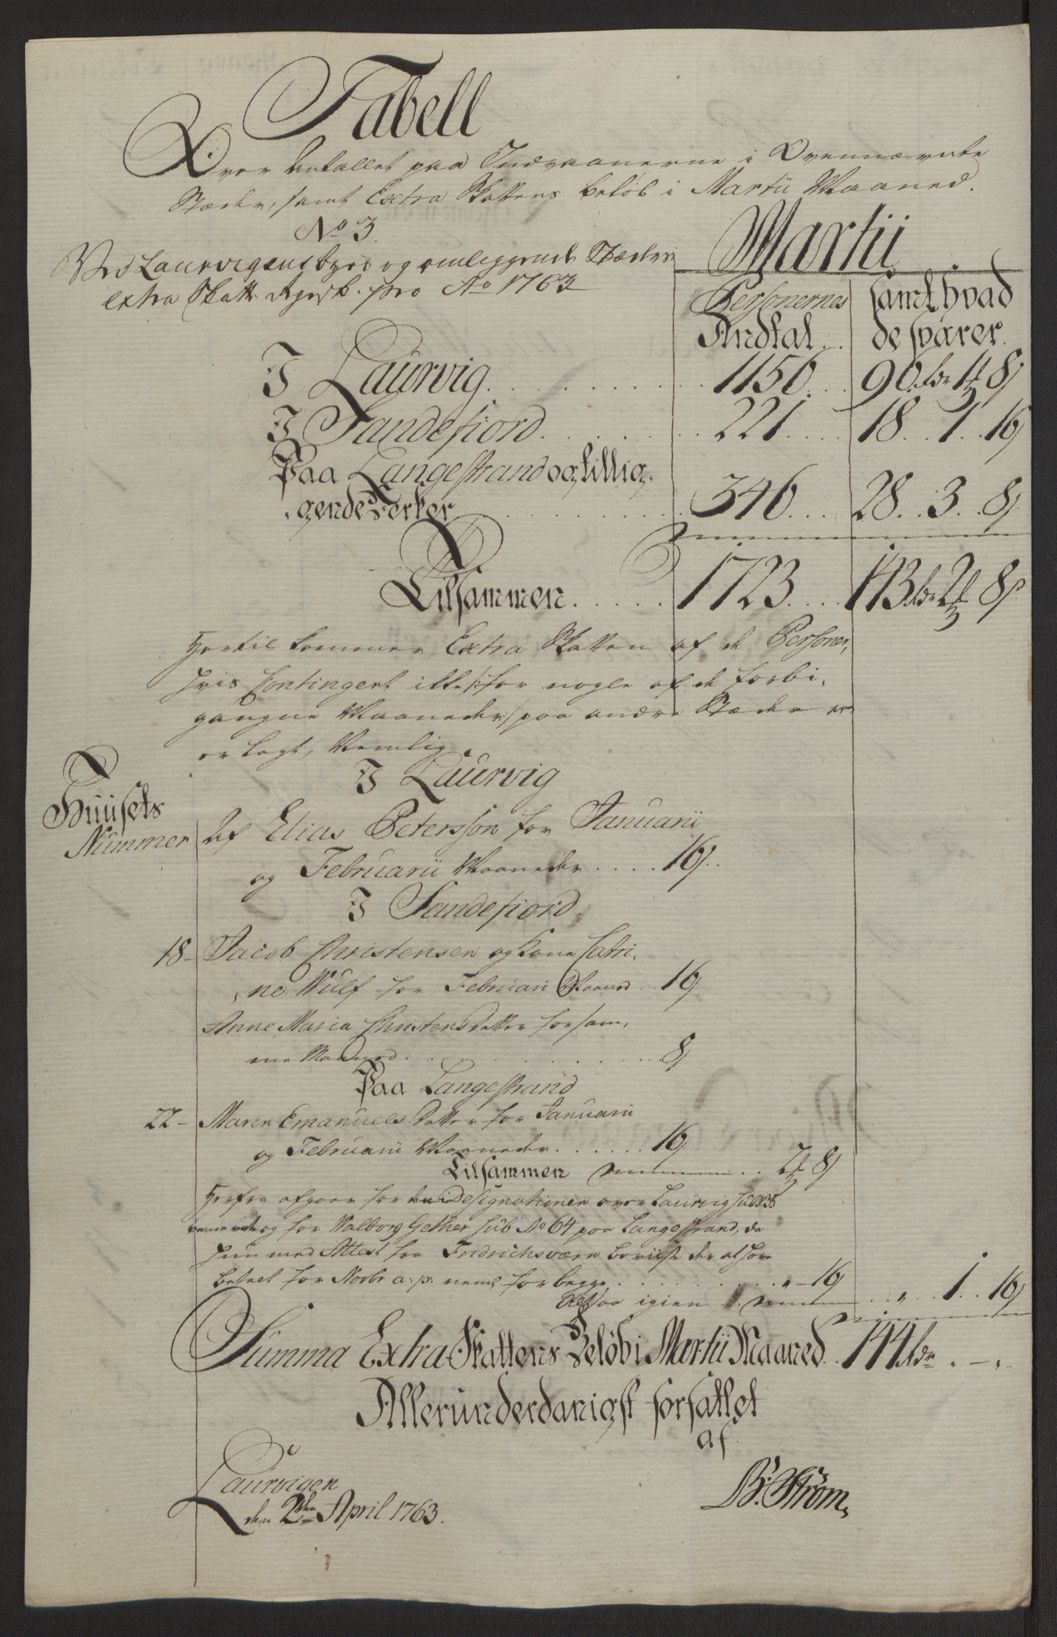 Tabell
Over Antallet paa Indvaanerne i Ovennævnte
Stæder, samt Extra Skattens beløb i Martii Maaned.
No 3.
Ved Laurvigens byes og omliggende Stæders
extra Skatt Regnsk. pro Ao 1763
Martii
Personernes
Andtal
samt hvad
de svarer
I Laurvig 1156 90 rdr 1 8
I Sandefiord 221 18 1 16
Paa Langestrand og tillig-
gende Verker 346 28 3 8
Tilsammen 1723 143 rdr 2 8
Hertil kommer Extra Skatten af de Personer,
hvis Contingent ikke for nogle af de forbi-
gangne Maaneder paa andre Stæder er
erlagt, Nemlig
I Laurvig
Huusets
Nummer
Af Elias Petersson for Januarii
og Februarii Maaneder 16
I Sandefiord
18 Jacob Christensen og Kone Catri-
ne Wulf for Februarii Maaned 16
Anne Maria Christensdatter for sam-
me Maaned 8
Paa Langestrand
22 Maren Emanuels datter for Januarii
og Februarii Maaneder 16
Tilsammen 2 8
Herfra afgaar for designationen over Laurvig sub No 38
og for Walborg sub No 64 paa Langestrand, da
hun med Attest fra Fridrichsværn beviist der at have
betalt for Novbr a. p. neml. for begge 16
Altsaa igien 1 16
Summa Extra Skattens Beløb i Martii Maaned 144 rdr
Allerunderdanigst forfattet
af
Laurvigen
den 2den April 1763.
B: Strøm